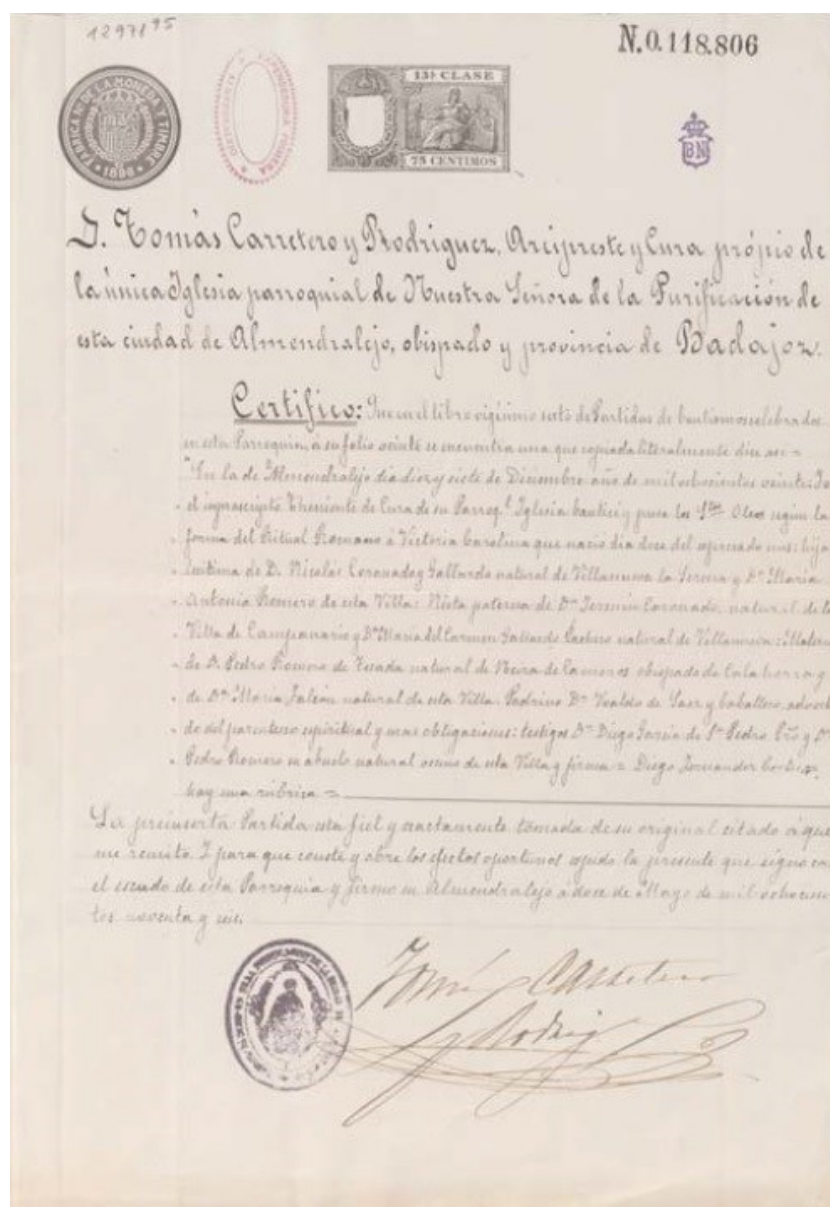 1297895
N.0.118.806
FABRICA Nl. DE LA MONEDA Y TIMBRE
1896
EXPENDEDURIA PRIMERA
13ª CLASE
75 CENTIMOS
BN
D. Tomás Carretero y Rodriguez, Arcipreste y Cura própio de
la única Iglesia parroquial de Nuestra Señora de la Purificación de
esta ciudad de Almendralejo, obispado y provincia de Badajoz.
Certifico: Que en el libro vigésimo sesto de Partidas de bautismos celebrados
en esta Parroquia, á su folio veinte se encuentra una que copiada literalmente dice así =
"En la de Almendralejo dia diez y siete de Diciembre año de mil ochocientos veinte: Yo
el infrascripto Theniente de Cura de su Parroql. Iglesia bauticé y puse los Stos. Oleos según la
forma del Ritual Romano á Victoria Carolina que nació dia doce del espresado mes: hija
lexitima de D. Nicolas Coronado y Gallardo natural de Villanueva la Serena y Dª Maria
Antonia Romero de esta Villa: Nieta paterna de Dn Fermin Coronado, natural de la
Villa de Campanario y Dª Maria del Carmen Gallardo natural de Villanueva: Materna
de D. Pedro Romero de Tejada natural de obispado de Calahorra y
de Dª Maria Falcón natural de esta Villa. Padrino Dn de y Caballero
do del parentesco espiritual y mas obligaciones: testigos Dn Diego Garcia de Sn Pedro Pbro y Dn
Pedro Romero su abuelo natural vecino de esta Villa y firma = Diego Fernandez
hay una rúbrica =
La preinserta Partida esta fiel y exactamente tomada de su original citado á que
me remito. Y para que conste y obre los efectos oportunos espido la presente que signo con
el escudo de esta Parroquia y firmo en Almendralejo á doce de Mayo de mil ochocien
tos noventa y seis.
Tomás Carretero
y Rodrig